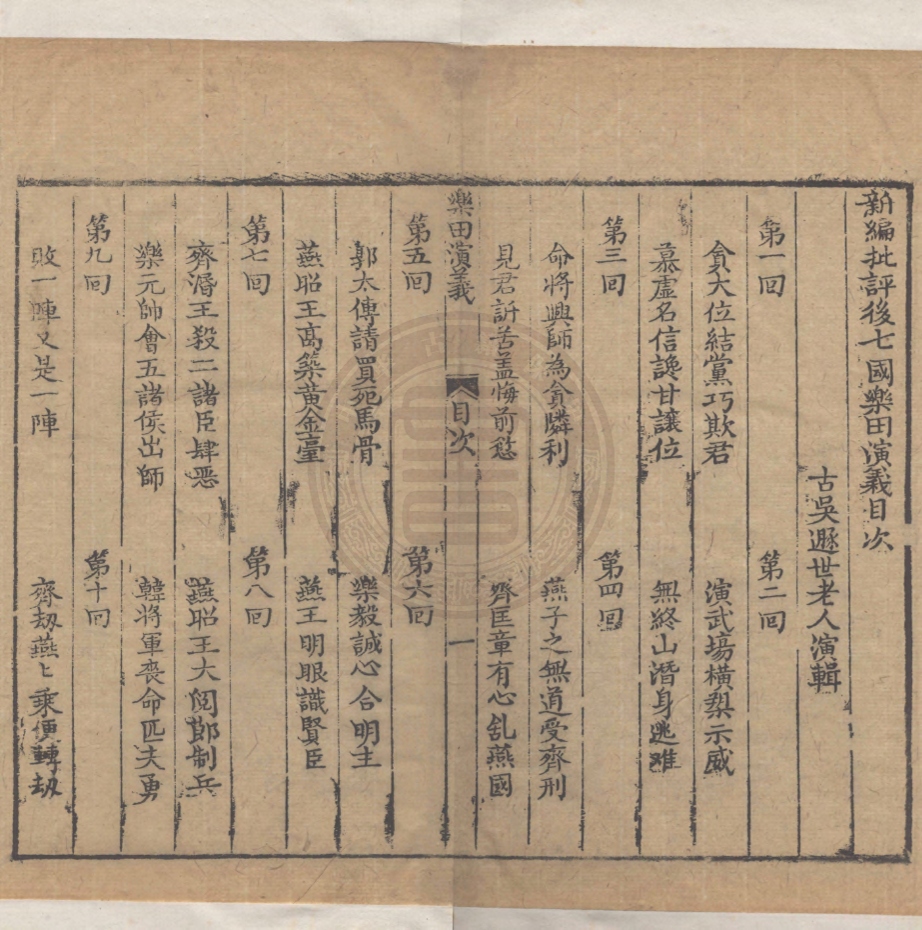 新編批評後七國樂田演義目次
古吳遯世老人演輯
第一回 第二回
貪大位結黨巧欺君 演武場橫槊示威
慕虛名信讒甘讓位 無終山潛身逃难
第三回 第四回
命將興師為貪隣利 燕子之無道受齊刑
見君訴苦盖悔前愆 齊匡章有心乱燕國
樂田演義 目次 一
第五回 第六回
郭太傅請買死馬骨 樂毅誠心合明主
燕昭王高築黃金臺 燕王明眼識賢臣
第七回 第八回
齊湣王殺二諸臣肆惡 燕昭王大閱郎制兵
樂元帥會五諸侯出師 韓將軍喪命匹夫勇
第九回 第十回
敗一陣又是一陣 齊刼燕燕乘便轉刼